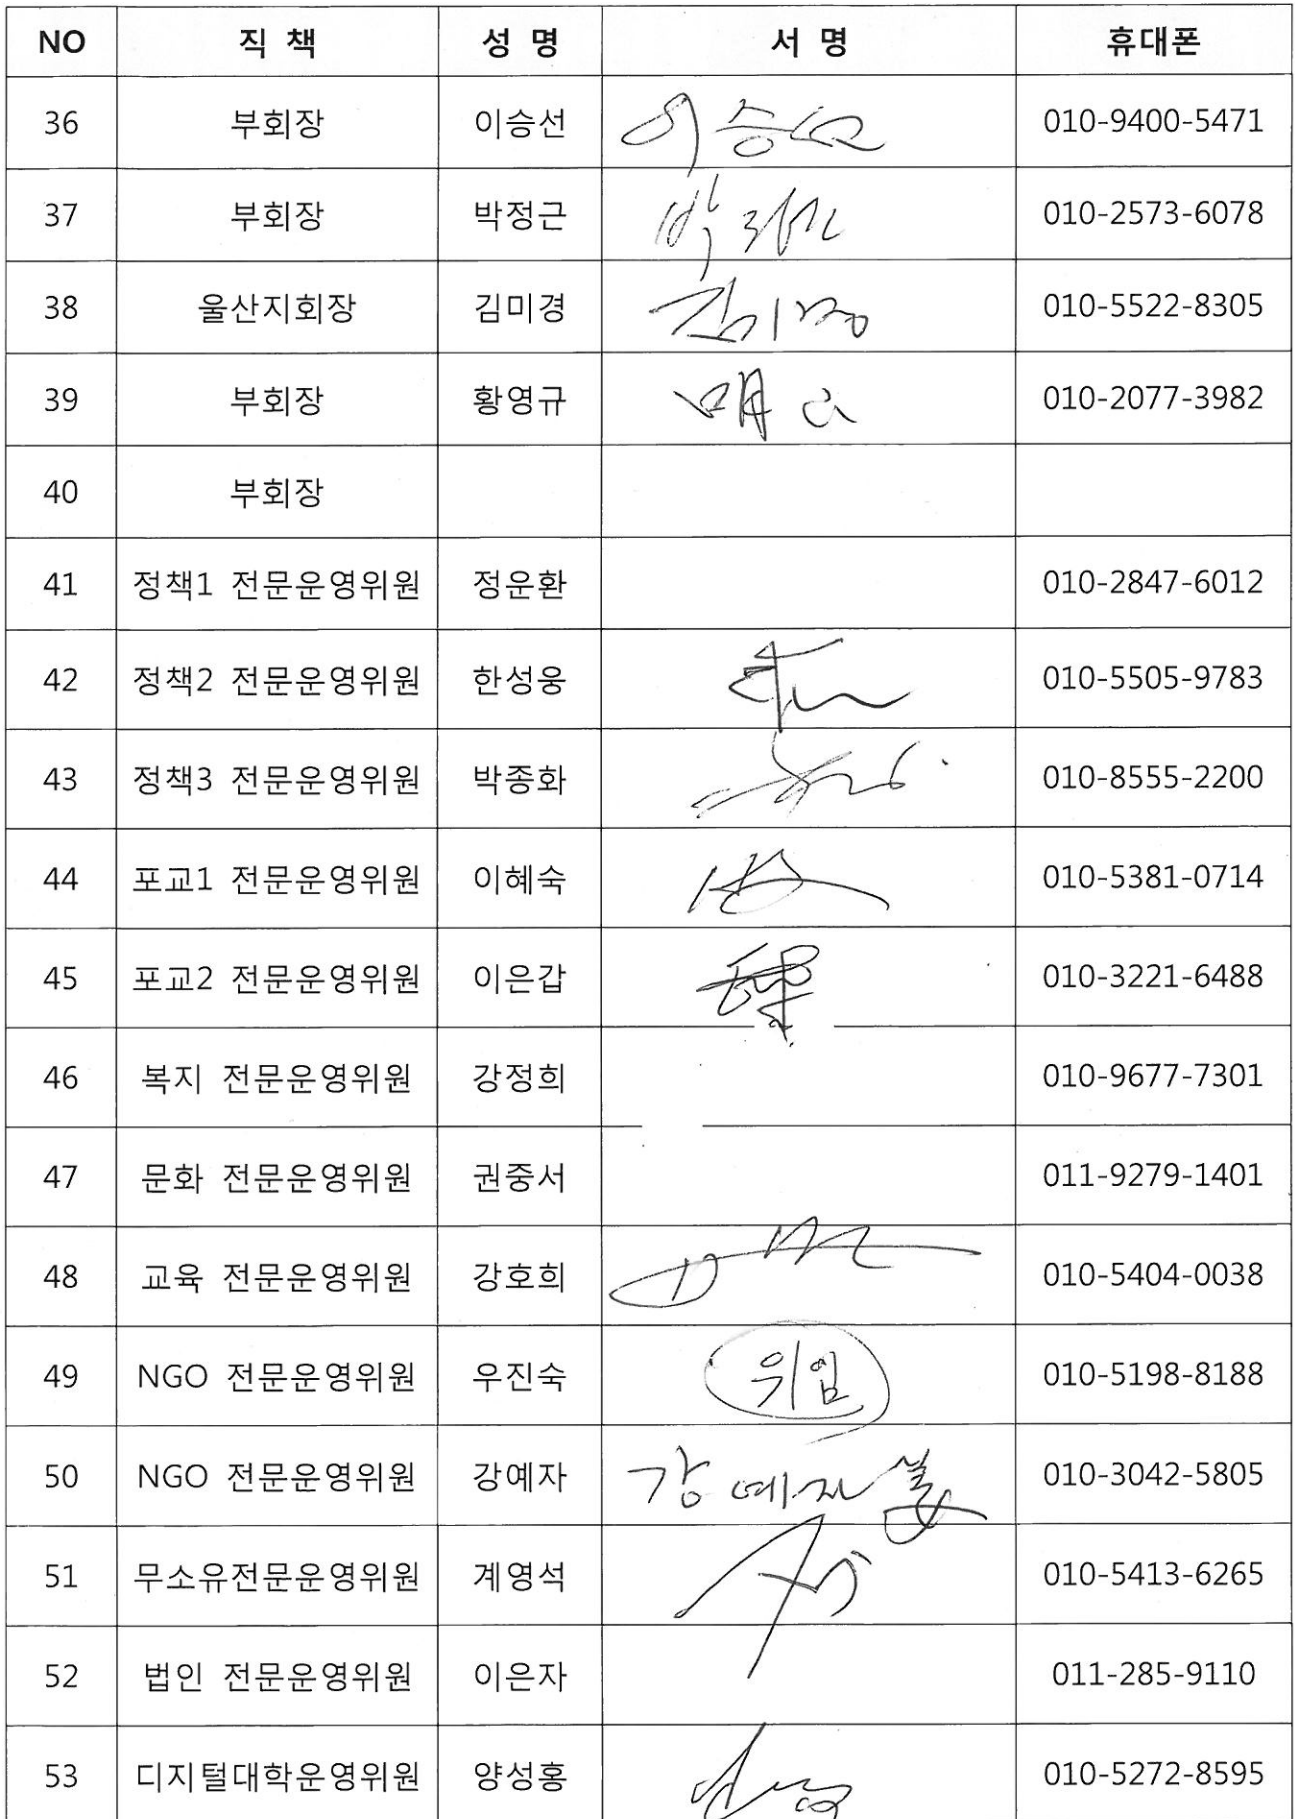 NO 직 책 성 명 서 명 휴대폰
36 부회장 이승선 이승선 010-9400-5471
37 부회장 박정근 010-2573-6078
38 울산지회장 김미경 김미경 010-5522-8305
39 부회장 황영규 010-2077-3982
40 부회장
41 정책1 전문운영위원 정운환 010-2847-6012
42 정책2 전문운영위원 한성웅 010-5505-9783
43 정책3 전문운영위원 박종화 010-8555-2200
44 포교1 전문운영위원 이혜숙 010-5381-0714
45 포교2 전문운영위원 이은갑 010-3221-6488
46 복지 전문운영위원 강정희 010-9677-7301
47 문화 전문운영위원 권중서 011-9279-1401
48 교육 전문운영위원 강호희 010-5404-0038
49 NGO 전문운영위원 우진숙 위임 010-5198-8188
50 NGO 전문운영위원 강예자 강예자 010-3042-5805
51 무소유전문운영위원 계영석 010-5413-6265
52 법인 전문운영위원 이은자 011-285-9110
53 디지털대학운영위원 양성홍 010-5272-8595